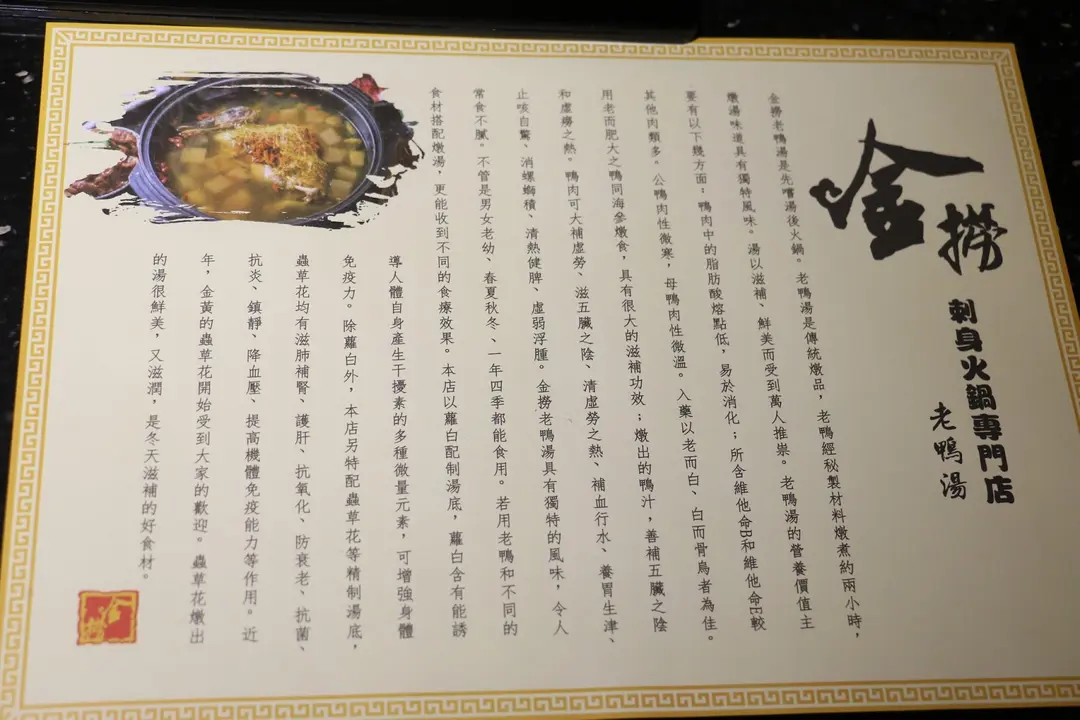 金撈
刺身火鍋專門店
老鴨湯
金撈老鴨湯是先嚐湯後火鍋。老鴨湯是傳統燉品，老鴨經秘製材料燉煮約兩小時，
燉湯味道具有獨特風味。湯以滋補、鮮美而受到萬人推崇。老鴨湯的營養價值主
要有以下幾方面：鴨肉中的脂肪酸熔點低，易於消化；所含維他命B和維他命E較
其他肉類多。公鴨肉性微寒，母鴨肉性微溫。入藥以老而白、白而骨烏者為佳。
用老而肥大之鴨同海參燉食，具有很大的滋補功效；燉出的鴨汁，善補五臟之陰
和虛癆之熱。鴨肉可大補虛勞、滋五臟之陰、清虛勞之熱、補血行水、養胃生津、
止咳自驚、消螺螄積、清熱健脾、虛弱浮腫。金撈老鴨湯具有獨特的風味，令人
常食不膩。不管是男女老幼、春夏秋冬、一年四季都能食用。若用老鴨和不同的
食材搭配燉湯，更能收到不同的食療效果。本店以蘿白配制湯底，蘿白含有能誘
導人體自身產生干擾素的多種微量元素，可增強身體
免疫力。除蘿白外，本店另特配蟲草花等精制湯底，
蟲草花均有滋肺補腎、護肝、抗氧化、防衰老、抗菌、
抗炎、鎮靜、降血壓、提高機體免疫能力等作用。近
年，金黃的蟲草花開始受到大家的歡迎。蟲草花燉出
的湯很鮮美，又滋潤，是冬天滋補的好食材。
金撈